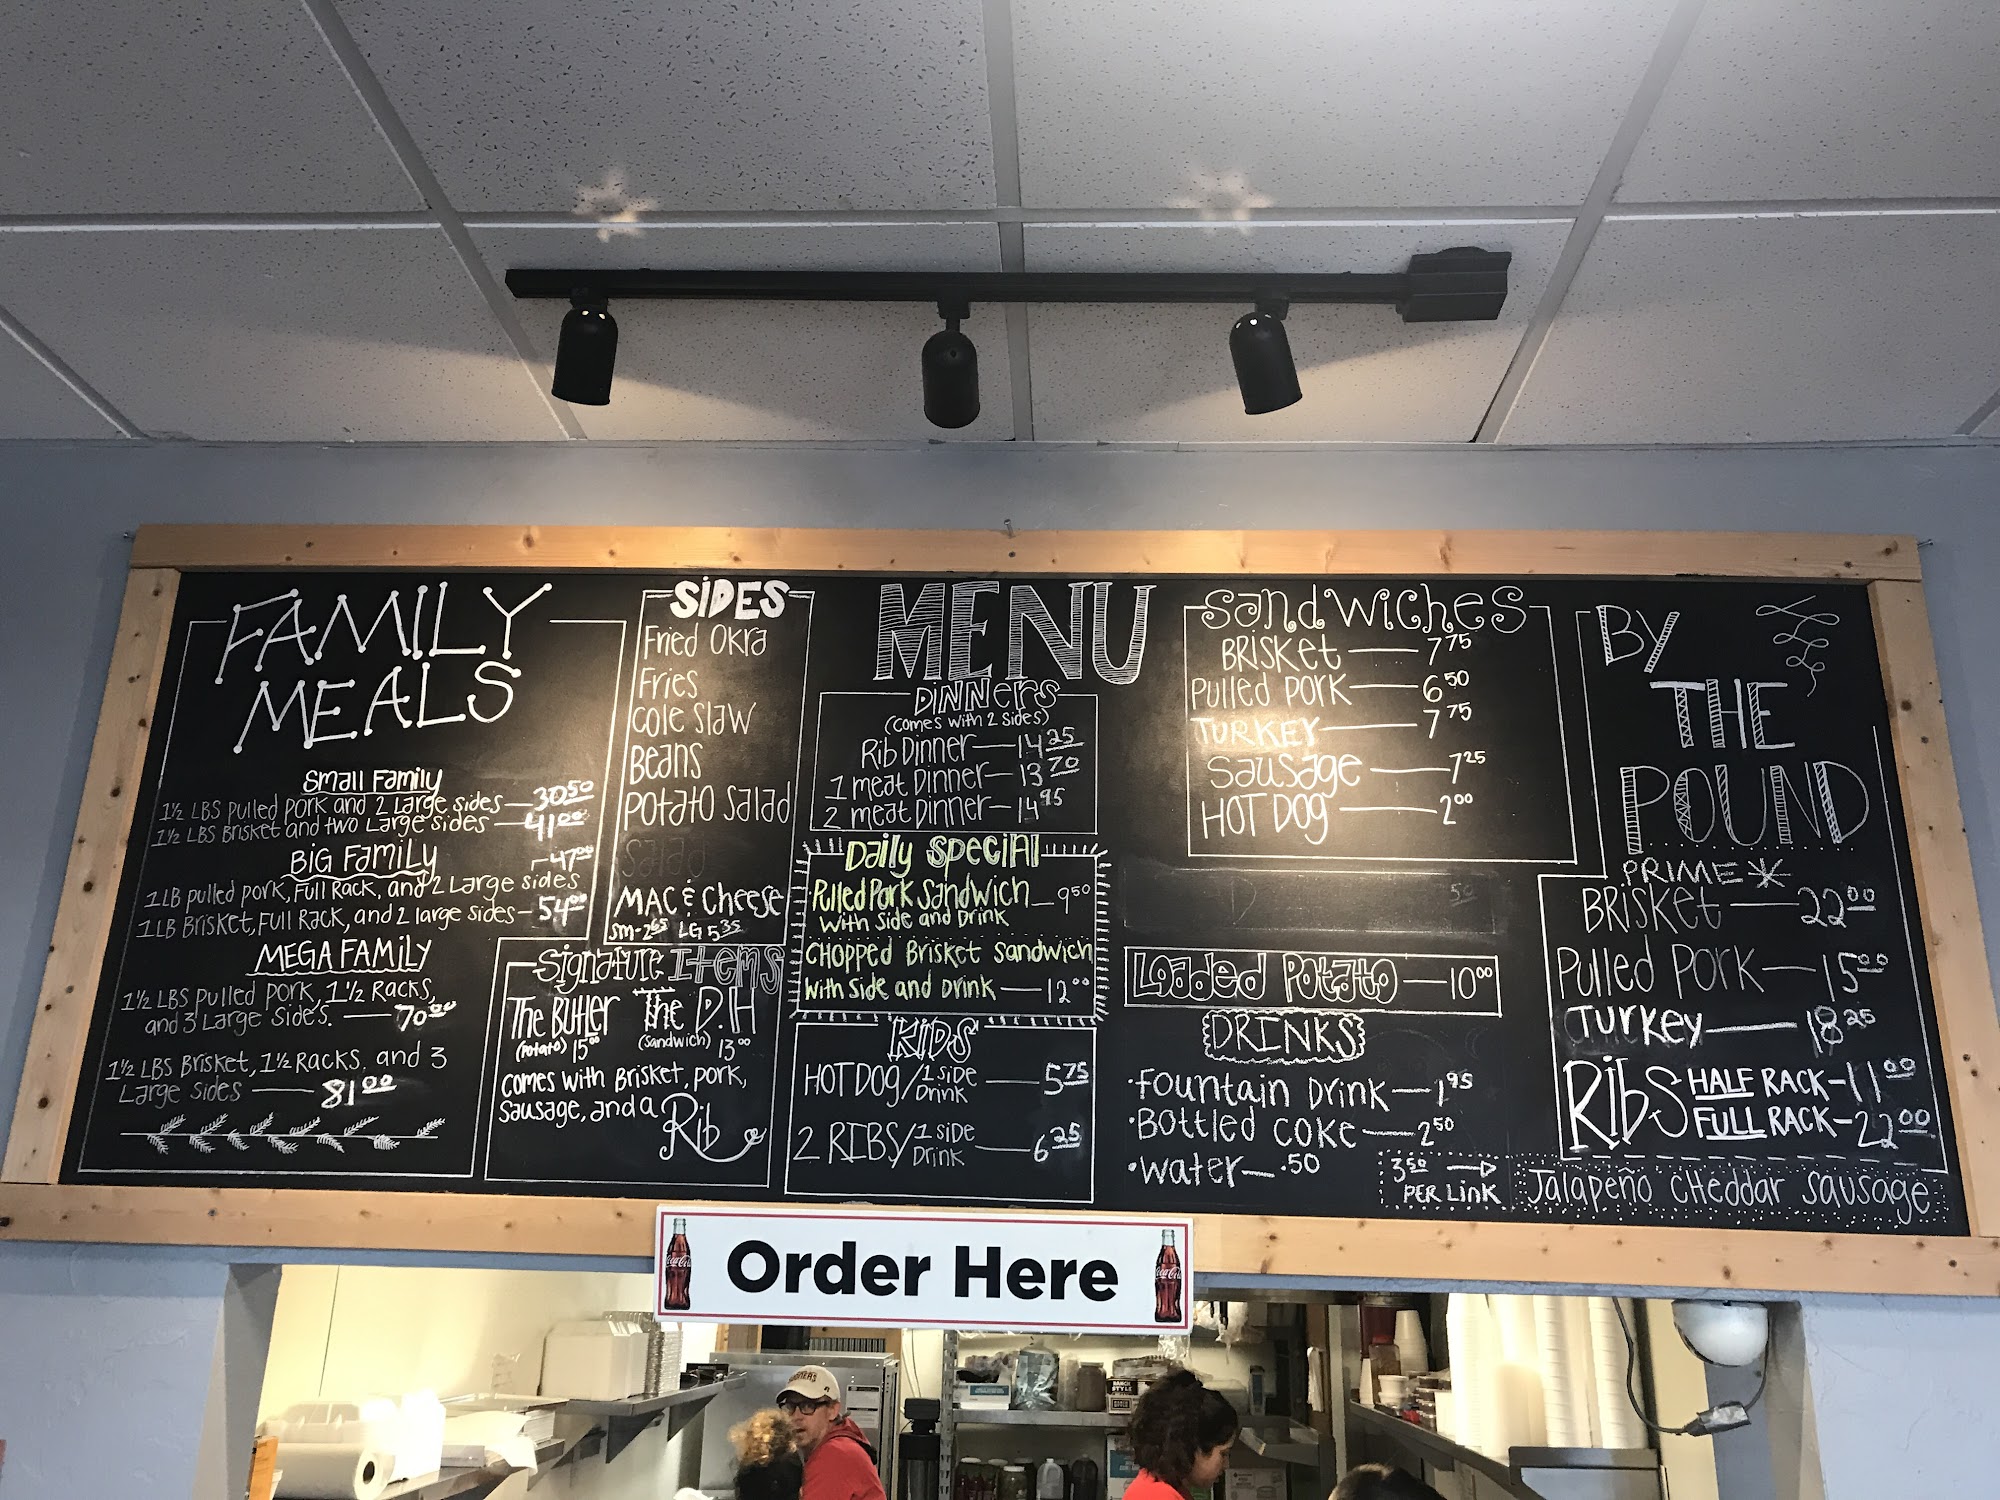 FAMILY
MEALS
Small Family
1½ LBS pulled pork and 2 Large sides — 30 50
1½ LBS Brisket and two Large sides — 41 00
BIG FAMILY
1 LB pulled pork, Full Rack, and 2 Large sides — 47 00
1 LB Brisket, Full Rack, and 2 large sides — 54 00
MEGA FAMILY
1½ LBS pulled pork, 1½ Racks,
and 3 Large sides. — 70 00
1½ LBS Brisket, 1½ Racks, and 3
Large sides — 81 00
SIDES
Fried Okra
Fries
Cole Slaw
Beans
Potato Salad
Salad
MAC & Cheese
SM-2 65 LG 5 35
Signature Items
The Butler
(Potato) 15 00
The D.H
(Sandwich) 13 00
comes with Brisket, pork,
sausage, and a Rib
MENU
DINNERS
(comes with 2 sides)
Rib Dinner — 14 25
1 meat Dinner — 13 70
2 meat Dinner — 14 95
Daily Special
Pulled Pork Sandwich — 9 50
with side and Drink
CHOPPED Brisket Sandwich
with side and Drink — 12 00
KIDS
HOT DOG / 1 side Drink — 5 75
2 RIBS / 1 side Drink — 6 25
Sandwiches
BRISKET — 7 75
Pulled Pork — 6 50
TURKEY — 7 75
Sausage — 7 25
HOT DOG — 2 00
Loaded Potato — 10 00
DRINKS
•Fountain Drink — 1 95
•Bottled Coke — 2 50
•Water — .50
BY
THE
POUND
PRIME *
BRISKET — 22 00
Pulled Pork — 15 00
Turkey — 18 25
Ribs HALF RACK - 11 00
FULL RACK - 22 00
3 50 → PER LINK
Jalapeño Cheddar Sausage
Order Here
Coca-Cola
Coca-Cola